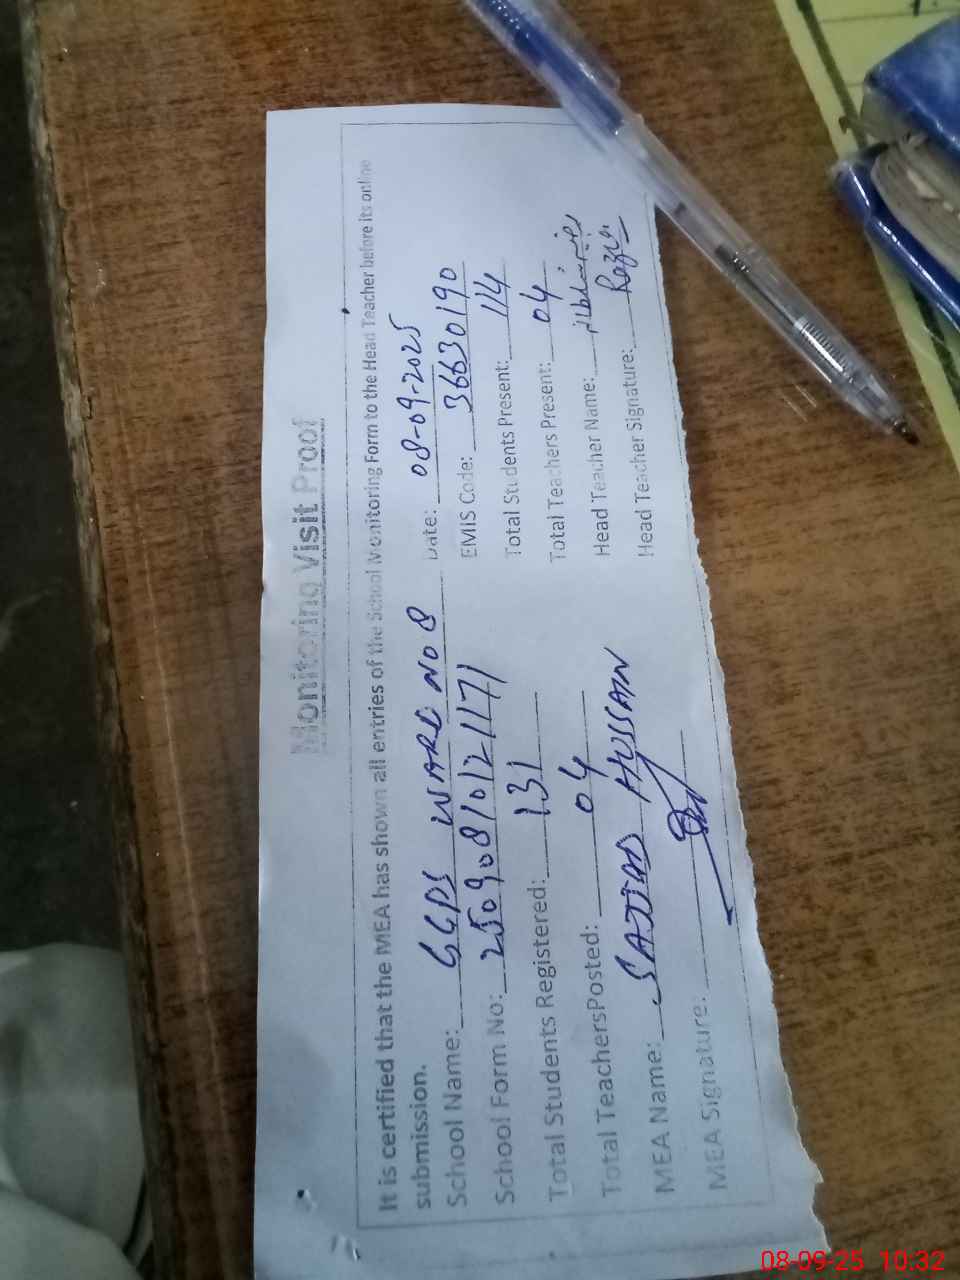 Monitoring Visit Proof
It is certified that the MEA has shown all entries of the School Monitoring Form to the Head Teacher before its online
submission.
School Name: GGPS WARD NO 8 Date: 08-09-2025
School Form No: 25090810121171 EMIS Code: 36630190
Total Students Registered: 131 Total Students Present: 114
Total TeachersPosted: 04 Total Teachers Present: 04
MEA Name: SAJJAD HUSSAIN Head Teacher Name:
MEA Signature: Head Teacher Signature: Razia
08-09-25 10:32